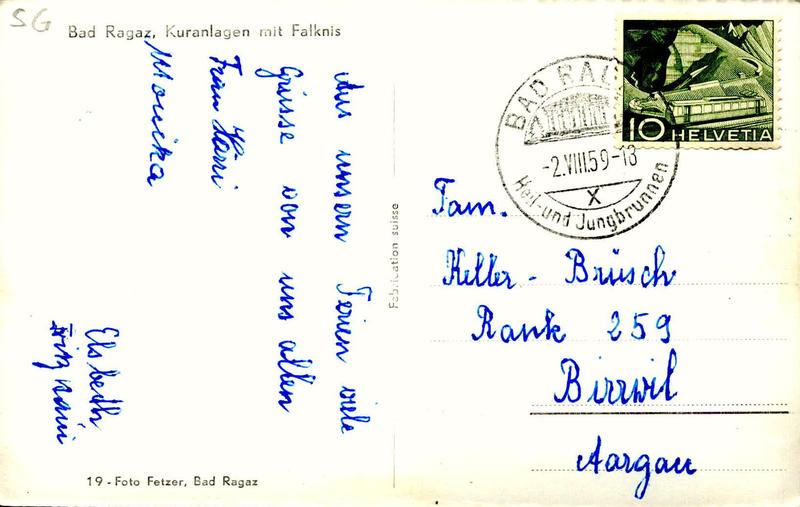 SG
Bad Ragaz, Kuranlagen mit Falknis
Aus unsern Ferien viele
Grüsse von uns allen
Frau
Monika
Elsbeth
19 - Foto Fetzer, Bad Ragaz
Fabrication suisse
BAD RAG
-2.VIII.59-13
X
Heil-und Jungbrunnen
10 HELVETIA
Fam.
Keller - Brüsch
Rank 259
Birrwil
Aargau